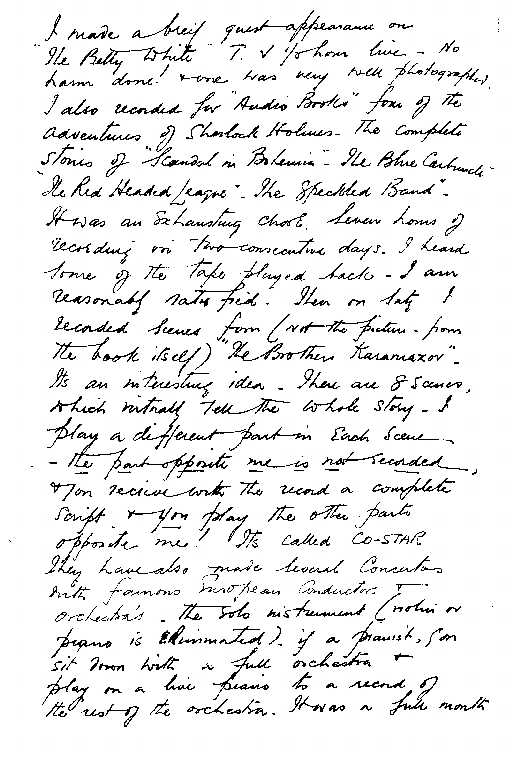 I made a brief guest appearance on
"The Betty White" T.V ½ hour live - No
harm done! + one was very well photographed.
I also recorded for "Audio Books" four of the
adventures of Sherlock Holmes - The complete
stories of "Scandal in Bohemia" - The Blue Carbuncle -
"The Red Headed League" - The Speckled Band" -
It was an Exhausting chore. Seven hours of
recording on two consecutive days. I heard
some of the tape played back - I am
reasonably satisfied. Then on Saty I
recorded Scenes from (not the picture - from
the book itself) "The Brothers Karamazov" -
Its an interesting idea - There are 8 Scenes,
which virtually Tell the whole story - I
play a different part in Each Scene -
- the part opposite me is not recorded,
+ you receive with the record a complete
Script + you play the other parts
opposite me! Its called CO-STAR.
They have also made several Concertos
with famous European Conductors +
orchestra's - the solo instrument (violin or
piano is eliminated). if a pianist, you
sit down with a full orchestra +
play on a live piano to a record of
the rest of the orchestra. It was a full month